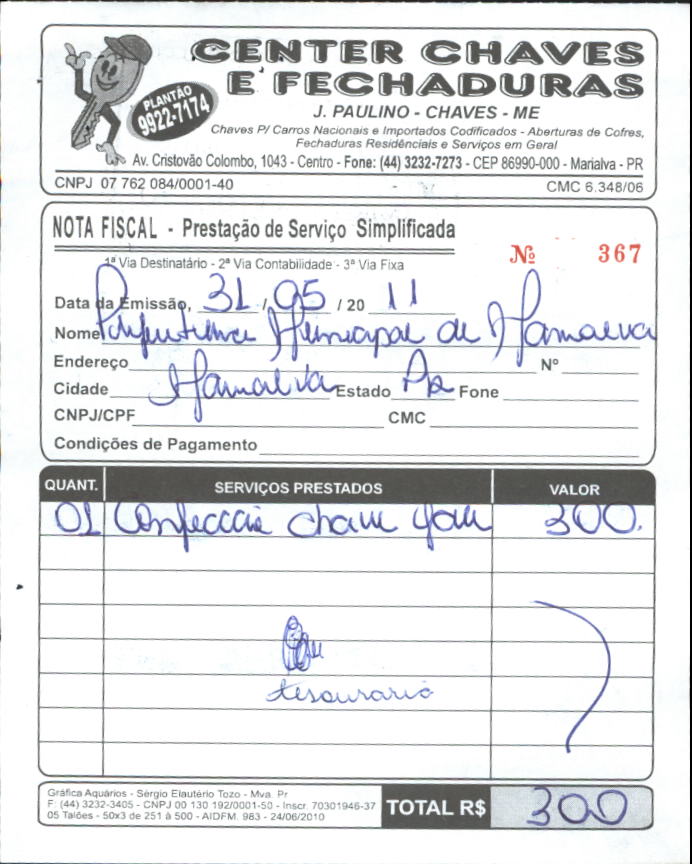 CENTER CHAVES
E FECHADURAS
PLANTÃO
9922-7174
J. PAULINO - CHAVES - ME
Chaves P/ Carros Nacionais e Importados Codificados - Aberturas de Cofres,
Fechaduras Residênciais e Serviços em Geral
Av. Cristovão Colombo, 1043 - Centro - Fone: (44) 3232-7273 - CEP 86990-000 - Marialva - PR
CNPJ 07 762 084/0001-40 CMC 6.348/06
NOTA FISCAL - Prestação de Serviço Simplificada
Nº 367
1ª Via Destinatário - 2ª Via Contabilidade - 3ª Via Fixa
Data da Emissão, 31 / 05 / 20 11
Nome Prefeitura Municipal de Marialva
Endereço Nº
Cidade Marialva Estado Pr Fone
CNPJ/CPF CMC
Condições de Pagamento
QUANT. SERVIÇOS PRESTADOS VALOR
01 Confeccão chave 300.
tesouraria
Gráfica Aquários - Sérgio Elautério Tozo - Mva. Pr
F: (44) 3232-3405 - CNPJ 00 130 192/0001-50 - Inscr. 70301946-37
05 Talões - 50x3 de 251 à 500 - AIDFM. 983 - 24/06/2010
TOTAL R$ 300